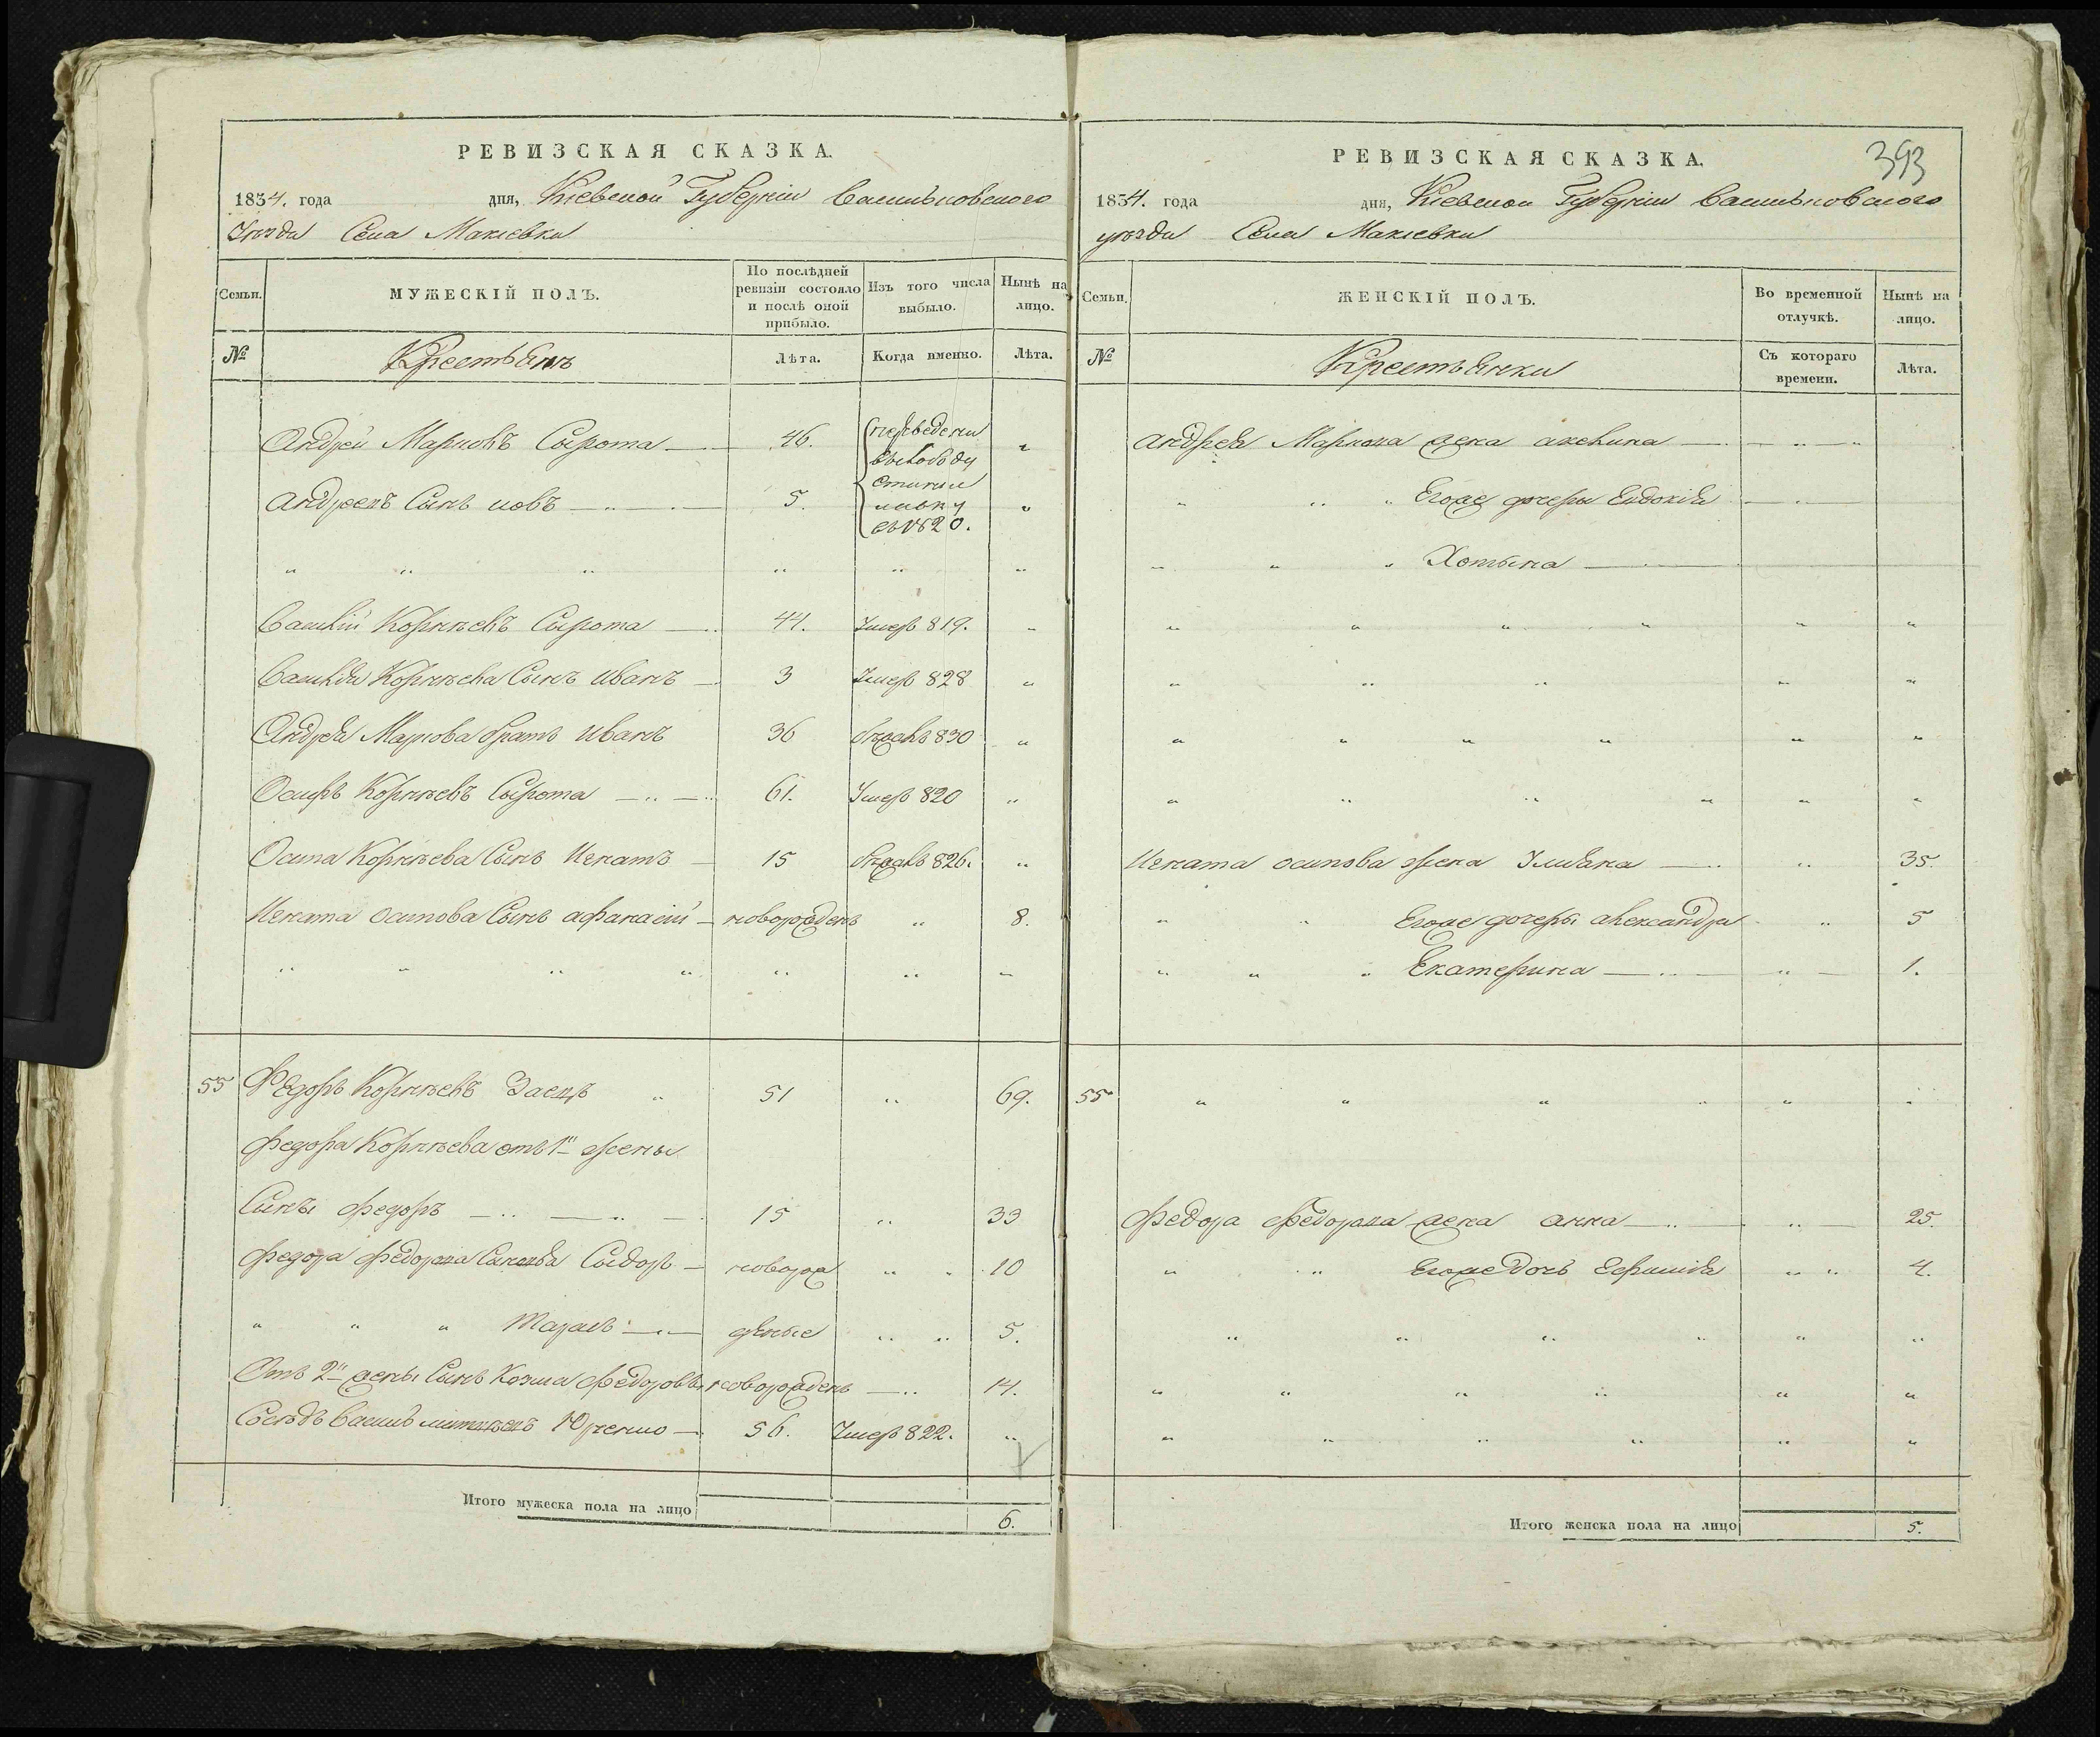 РЕВИЗСКАЯ СКАЗКА.
1834. года дня, Кіевской Губерніи Васильковского
уезда Села Макіевки
Семьи. МУЖЕСКІЙ ПОЛЪ. По послѣдней ревизіи состояло и послѣ оной прибыло. Изъ того числа выбыло. Нынѣ на лицо.
№ Крестьянъ Лѣта. Когда именно. Лѣта.
Андрей Марковъ Сырота 46. переведены
Андреевъ Сынъ 5. въ 1820.
Василій Корнѣевъ Сырота 44. Умеръ 819.
Василія Корнѣева Сынъ Иванъ 3 Умеръ 828
Андрея Маркова братъ Иванъ 36 830
Осипъ Корнѣевъ Сырота 61. Умеръ 820
Осипа Корнѣева Сынъ Игнатъ 15 826.
Игната Осипова Сынъ Афанасій новорожденъ 8.
55 Федоръ Корнѣевъ Заецъ 51 69.
Федора Корнѣева отъ 1й жены
Сынъ Федоръ 15 33
Федора Федорова Сыновья Сыдоръ новорож 10
Тарасъ денные 5.
Отъ 2й жены Сынъ Козма Федоровъ новорожденъ 14.
Сосѣдъ Василь Юрченко 56. Умеръ 822.
Итого мужеска пола на лицо 6.
393
РЕВИЗСКАЯ СКАЗКА.
1834. года дня, Кіевской Губерніи Васильковского
уезда Села Макіевки
Семьи. ЖЕНСКІЙ ПОЛЪ. Во временной отлучкѣ. Нынѣ на лицо.
№ Крестьянки Съ котораго времени. Лѣта.
Андрея Маркова жена
Егоже дочеры Евдокія
Хотына
Игната Осипова жена Ульяна 35.
Егоже дочеры Александра 5
Екатерина 1.
55
Федора Федорова жена Анна 25.
Егоже дочь Ефимія 4.
Итого женска пола на лицо 5.